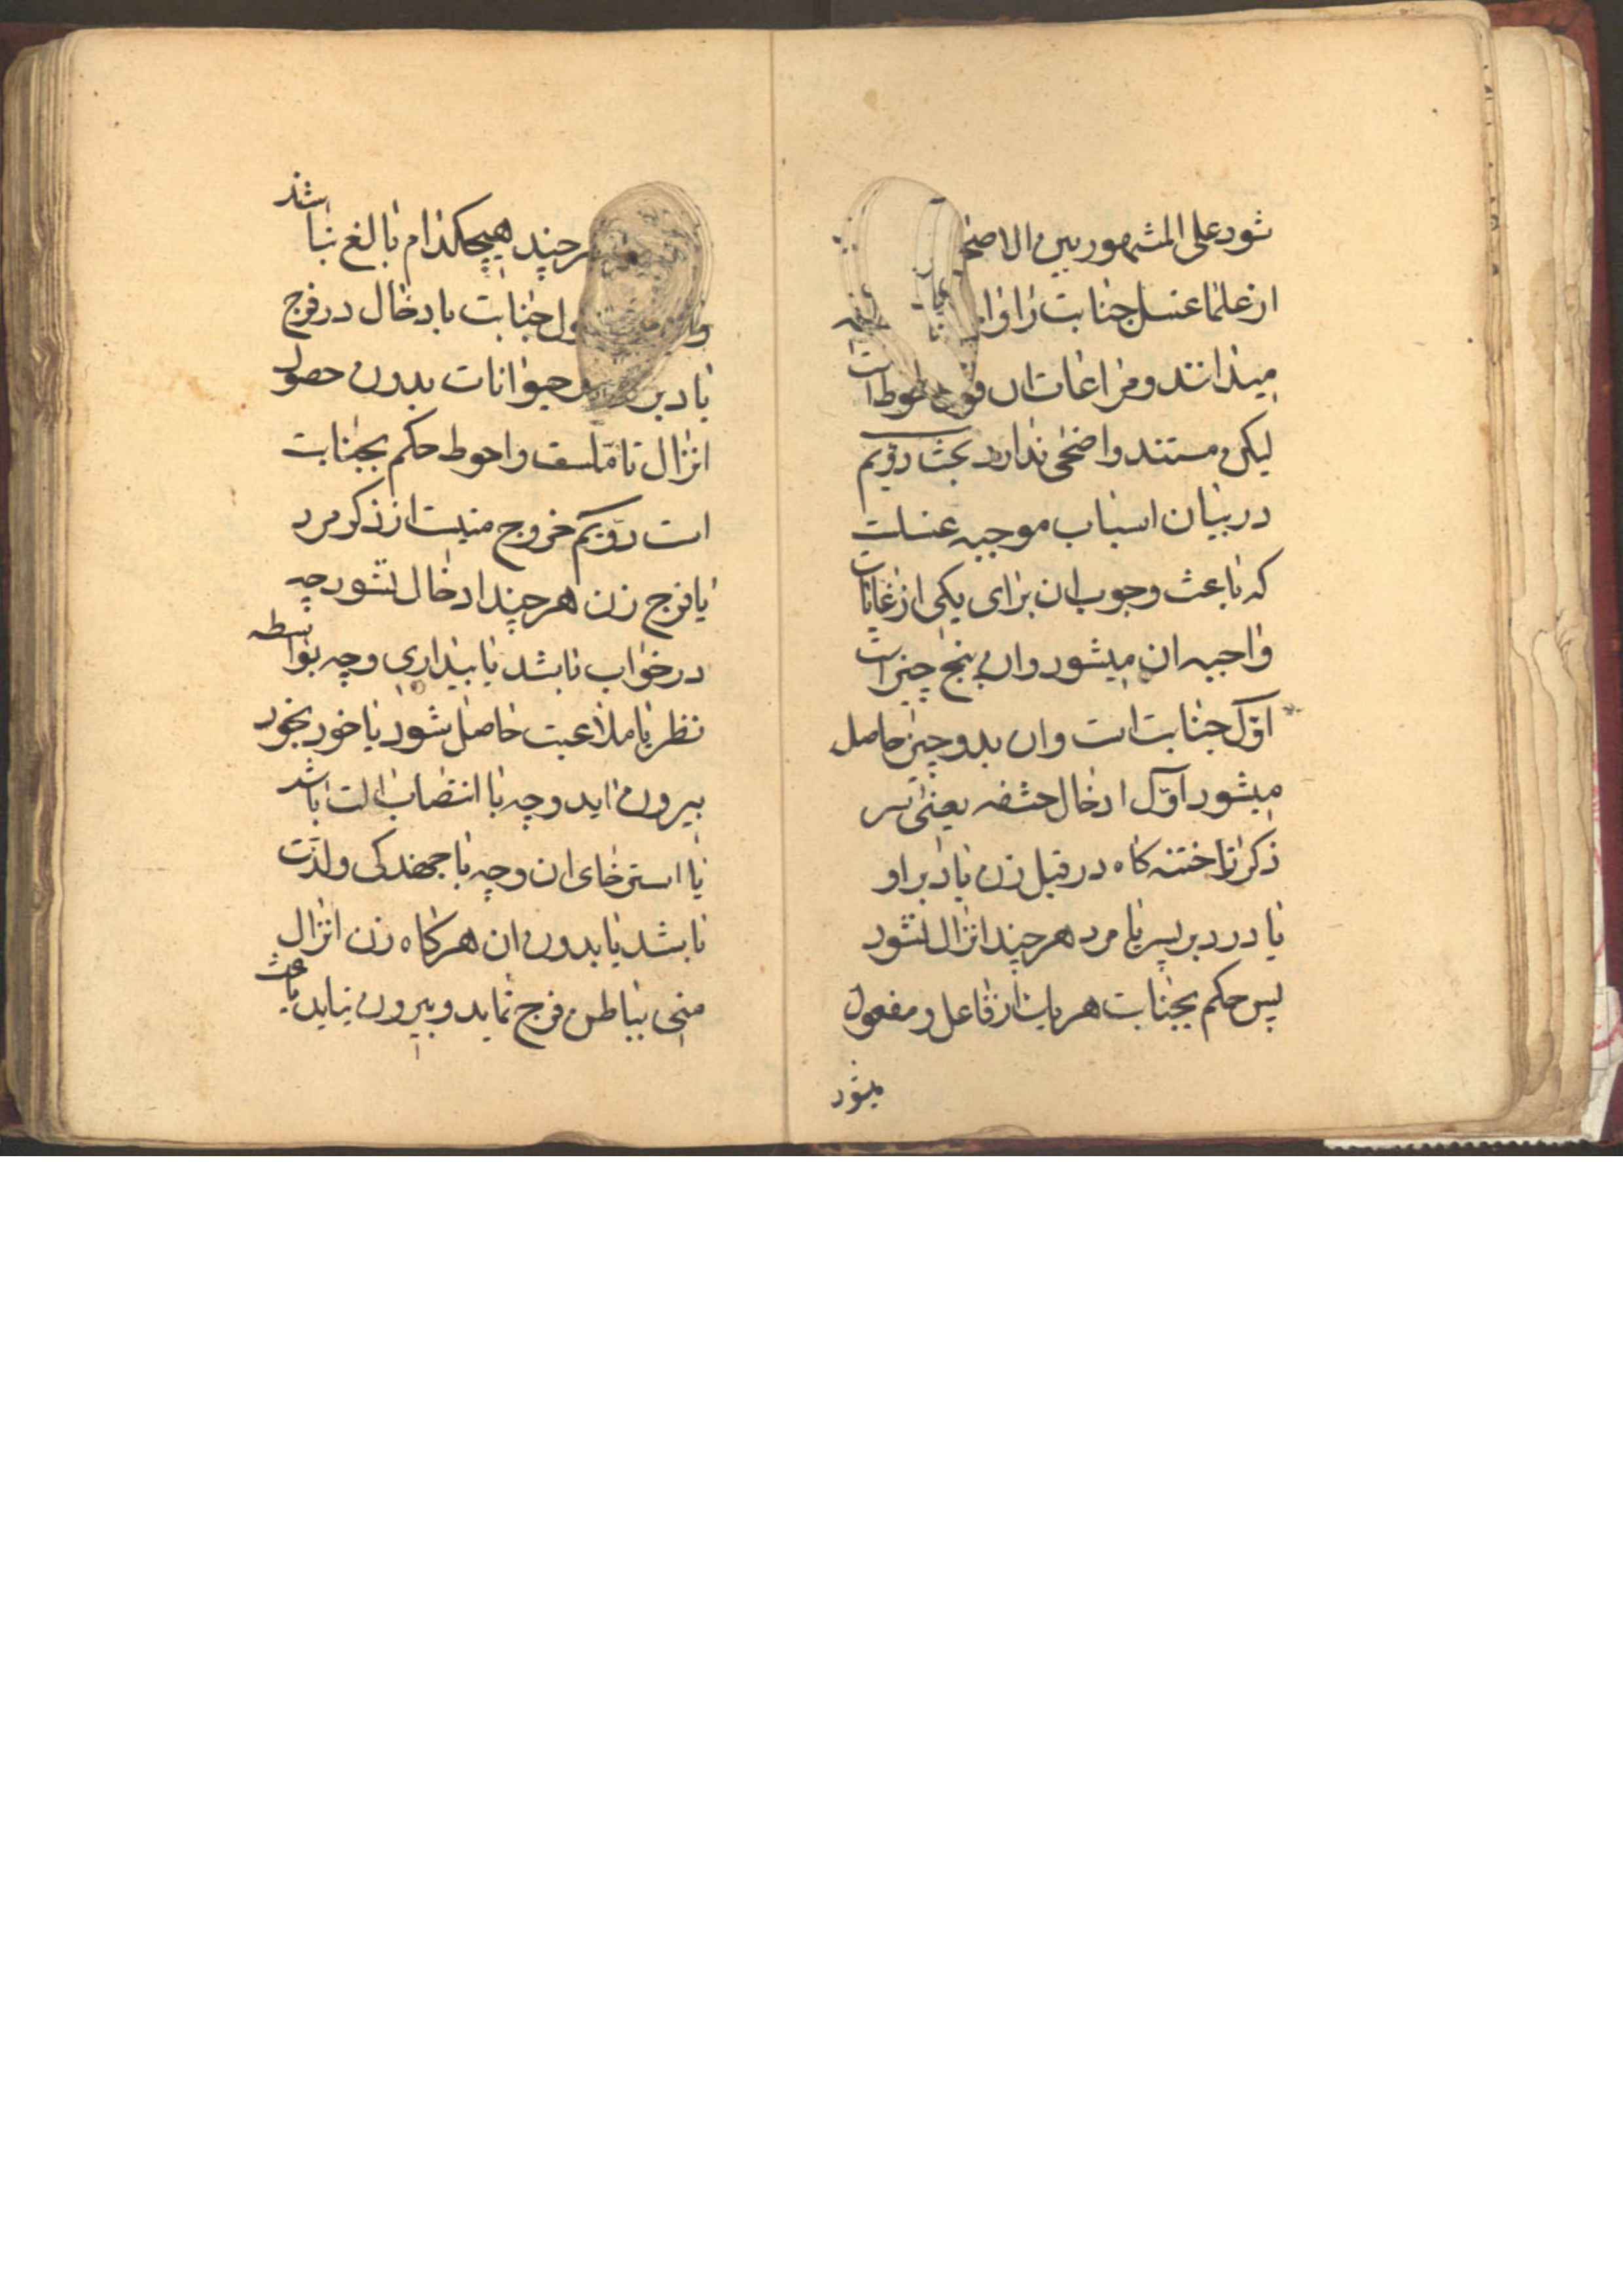 شود علی المشهور بین الاصحا
از علما غسل جنابت را وا
میدانند و مراعات ان احوط است
لیکن مستند واضحی ندارد بحث دویم
در بیان اسباب موجبه غسلست
که باعث وجوب ان برای یکی از غایات
واجبه ان میشود وان پنج چیز است
اول جنابت است وان بدو چیز حاصل
میشود اول ادخال حشفه یعنی سر
ذکر تا ختنه کاه در قبل زن یا دبر او
یا در دبر پسر یا مرد هر چند انزال نشود
پس حکم بجنابت هریک از فاعل و مفعول
میشود
هر چند هیچکدام بالغ نباشد
جنابت بادخال در فرج
یا دبر حیوانات بدون حصول
انزال تاملست واحوط حکم بجنابت
است دویم خروج منیست از ذکر مرد
یا فرج زن هر چند ادخال نشود چه
در خواب باشد یا بیداری و چه بواسطه
نظر یا ملاعبت حاصل شود یا خود بخود
بیرون اید و چه با انتصاب الت باشد
یا استرخای ان و چه با جهندکی و لذت
باشد یا بدون ان هرکاه زن انزال
منی بباطن فرج نماید و بیرون نیاید باعث